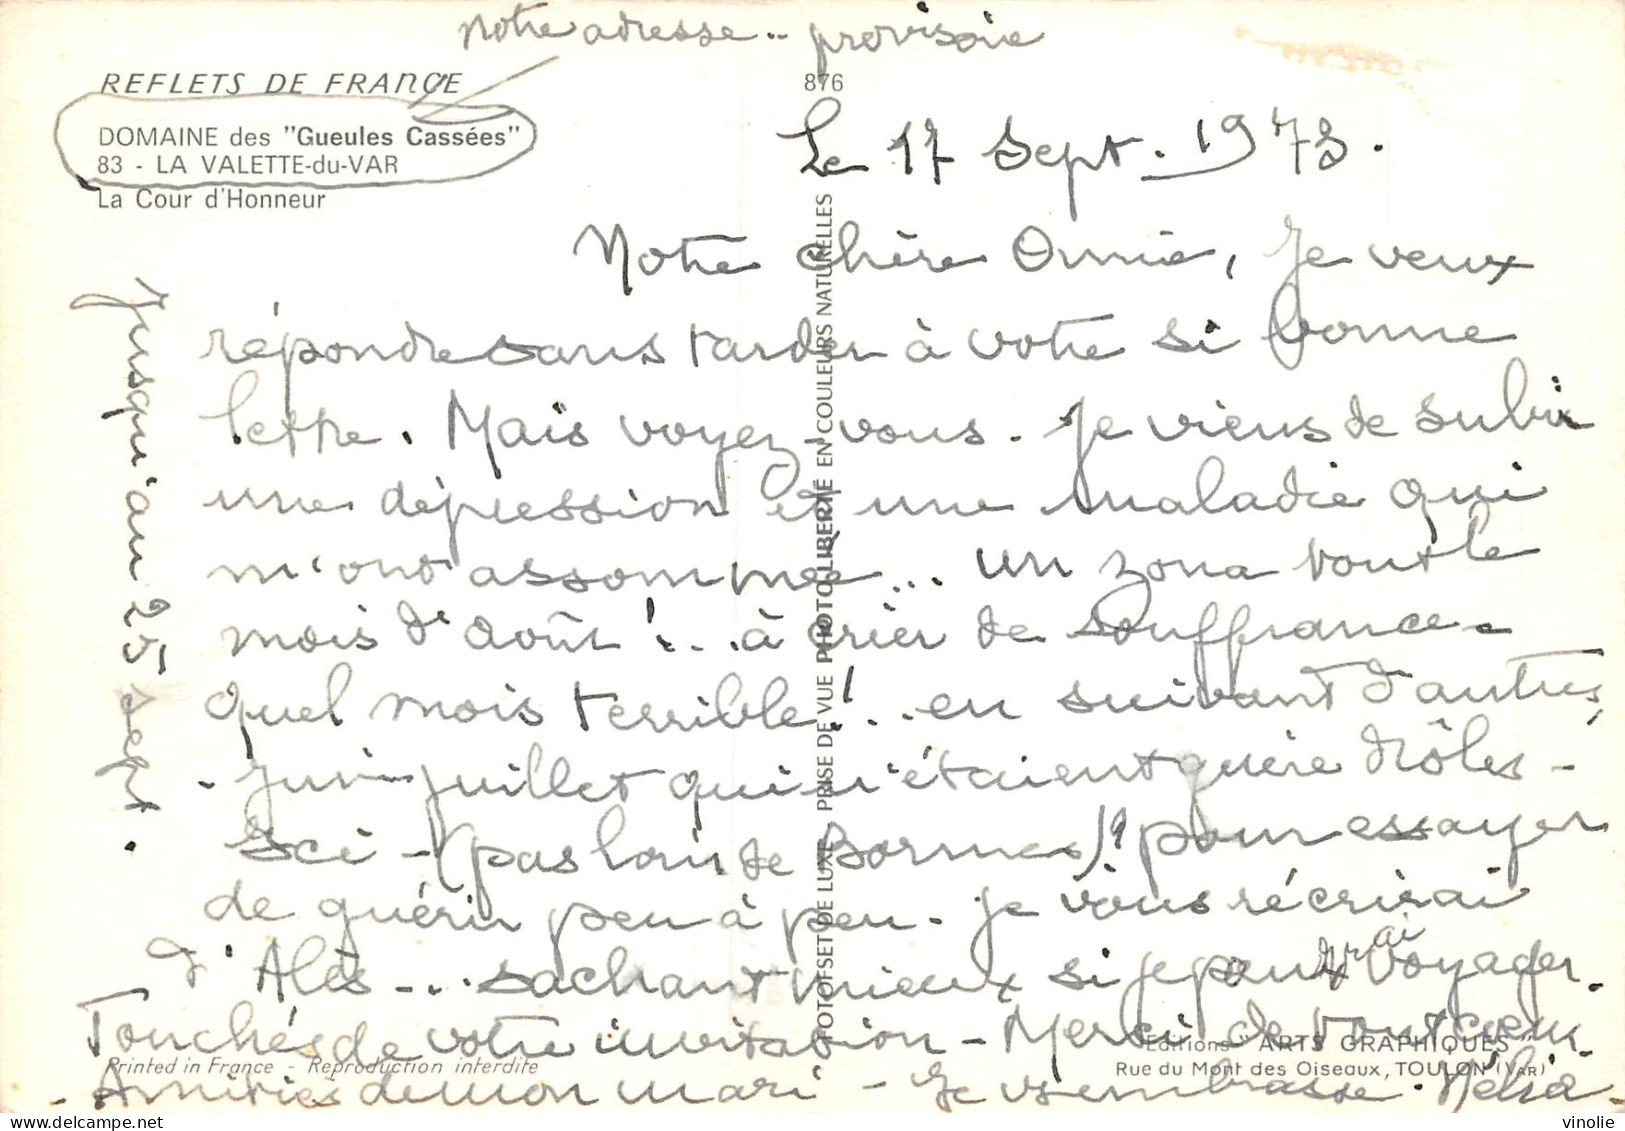 notre adresse .. provisoire
REFLETS DE FRANCE
876
DOMAINE des "Gueules Cassées"
83 - LA VALETTE-du-VAR
La Cour d'Honneur
Le 17 Sept. 1973.
Notre chère Ornie, Je veux
répondre sans tarder à votre si bonne
lettre. Mais voyez-vous. Je viens de subir
une dépression et une maladie qui
m'ont assommée... un zona tout le
mois d'août !... à crier de souffrance -
quel mois terrible !.. en suivant d'autres,
- Juin juillet qui n'étaient guère drôles -
Ici - (pas loin de Bormes)! pour essayer
de guérir peu à peu. Je vous récrirai
d'Alès... sachant mieux si je pourrai voyager.
Touchés de votre invitation - Merci de tout cœur
- Amitiés de mon mari - Je vs embrasse. Nélia
Jusqu'au 25 sept.
FOTOFSET DE LUXE PRISE DE VUE PHOTO LIBERTÉ EN COULEURS NATURELLES
Printed in France - Reproduction interdite
Editions "ARTS GRAPHIQUES"
Rue du Mont des Oiseaux, TOULON (VAR)
vinolie